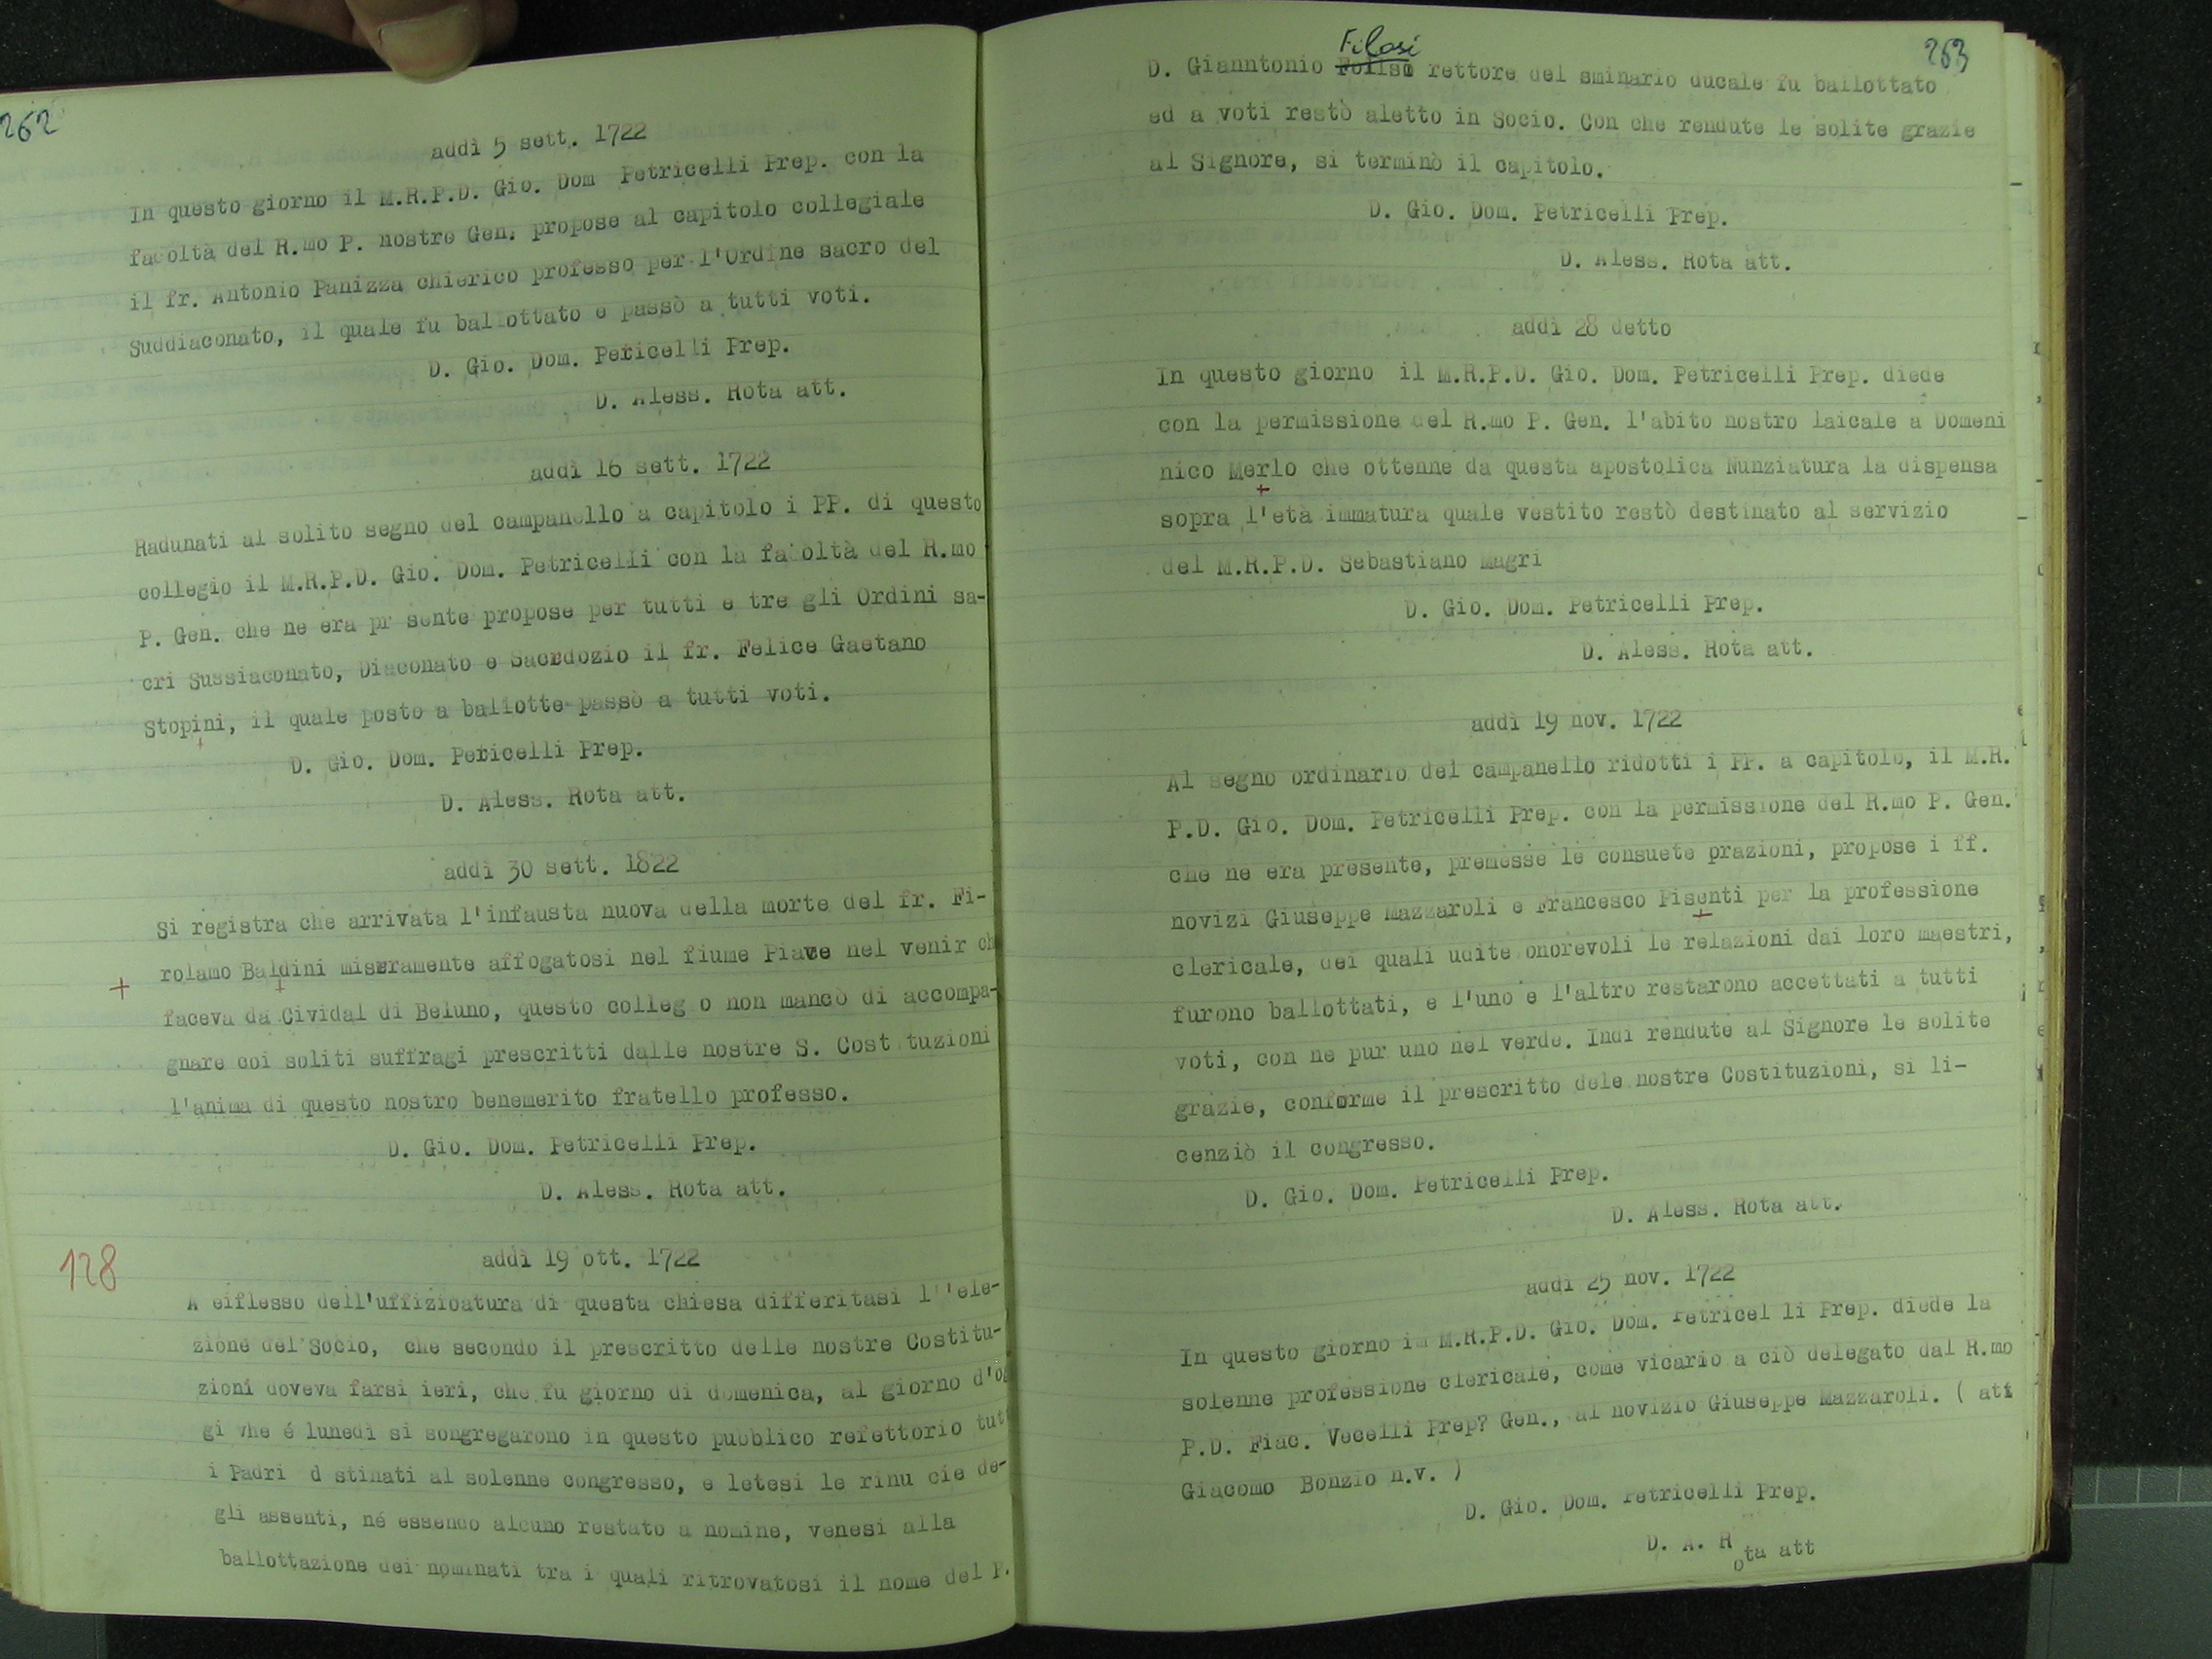 262
addì 5 sett. 1722
In questo giorno il M.R.P.D. Gio. Dom Petricelli Prep. con la
facoltà del R.mo P. nostro Gen. propose al capitolo collegiale
il fr. Antonio Panizza chierico professo per l'Ordine sacro del
Suddiaconato, il quale fu ballottato e passò a tutti voti.
D. Gio. Dom. Petricelli Prep.
D. Aless. Rota att.
addì 16 sett. 1722
Radunati al solito segno del campanello a capitolo i PP. di questo
collegio il M.R.P.D. Gio. Dom. Petricelli con la facoltà del R.mo
P. Gen. che ne era pr sente propose per tutti e tre gli Ordini sa-
cri Sussiaconato, Diaconato e Sacrdozio il fr. Felice Gaetano
Stopini, il quale posto a ballotte passò a tutti voti.
D. Gio. Dom. Petricelli Prep.
D. Aless. Rota att.
addì 30 sett. 1822
Si registra che arrivata l'infausta nuova della morte del fr. Fi-
+ rolamo Baldini miseramente affogatosi nel fiume Piave nel venir ch
faceva da Cividal di Beluno, questo colleg o non mancò di accompa-
gnare coi soliti suffragi prescritti dalle nostre S. Cost tuzioni
l'anima di questo nostro benemerito fratello professo.
D. Gio. Dom. Petricelli Prep.
D. Aless. Rota att.
128
addì 19 ott. 1722
A eiflesso dell'uffizioatura di questa chiesa differitasi l''ele-
zione del Socio, che secondo il prescritto delle nostre Costitu-
zioni doveva farsi ieri, che fu giorno di domenica, al giorno d'og
gi vhe é lunedì si songregarono in questo pubblico refettorio tutt
i Padri d stinati al solenne congresso, e letesi le rinu cie de-
gli assenti, né essendo alcuno restato a nomine, venesi alla
ballottazione dei nominati tra i quali ritrovatosi il nome del P.
263
Filosi
D. Gianntonio rettore del sminario ducale fu ballottato
ed a voti restò aletto in Socio. Con che rendute le solite grazie
al Signore, si terminò il capitolo.
D. Gio. Dom. Petricelli Prep.
D. Aless. Rota att.
addì 28 detto
In questo giorno il M.R.P.D. Gio. Dom. Petricelli Prep. diede
con la permissione del R.mo P. Gen. l'abito nostro laicale a Domeni
nico Merlo che ottenne da questa apostolica Nunziatura la dispensa
sopra l'età immatura quale vestito restò destinato al servizio
del M.R.P.D. Sebastiano Magri
D. Gio. Dom. Petricelli Prep.
D. Aless. Rota att.
addì 19 nov. 1722
Al segno ordinario del campanello ridotti i PP. a capitolo, il M.R.
P.D. Gio. Dom. Petricelli Prep. con la permissione del R.mo P. Gen.
che ne era presente, premesse le consuete prazioni, propose i ff.
novizi Giuseppe Mazzaroli e Francesco Pisenti per la professione
clericale, dei quali udite onorevoli le relazioni dai loro maestri,
furono ballottati, e l'uno e l'altro restarono accettati a tutti
voti, con ne pur uno nel verde. Indi rendute al Signore le solite
grazie, conforme il prescritto dele nostre Costituzioni, si li-
cenziò il congresso.
D. Gio. Dom. Petricelli Prep.
D. Aless. Rota att.
addì 25 nov. 1722
In questo giorno im M.R.P.D. Gio. Dom. Petricel li Prep. diede la
solenne professione clericale, come vicario a ciò delegato dal R.mo
P.D. Fiac. Vecelli Prep? Gen., al novizio Giuseppe Mazzaroli. ( att
Giacomo Bonzio n.v. )
D. Gio. Dom. Petricelli Prep.
D. A. Rota att